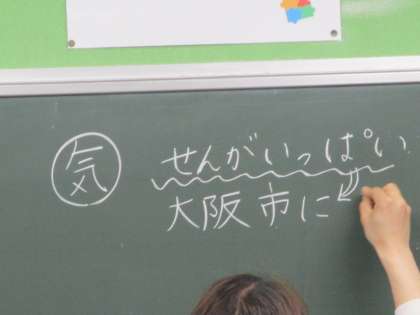 気 せんがいっぱい
大阪市に